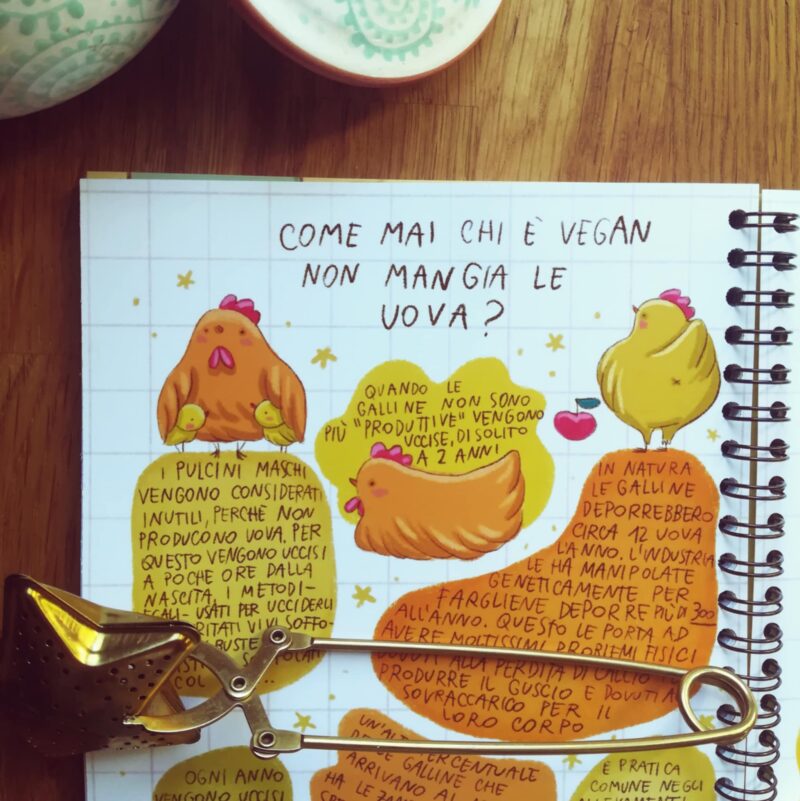 COME MAI CHI È VEGAN
NON MANGIA LE
UOVA?
QUANDO LE
GALLINE NON SONO
PIÙ "PRODUTTIVE" VENGONO
UCCISE, DI SOLITO
A 2 ANNI
I PULCINI MASCHI
VENGONO CONSIDERATI
INUTILI, PERCHÉ NON
PRODUCONO UOVA. PER
QUESTO VENGONO UCCISI
A POCHE ORE DALLA
NASCITA. I METODI-
USATI PER UCCIDERLI
VIVI, SOFFO-
COL
IN NATURA
LE GALLINE
DEPORREBBERO
CIRCA 12 UOVA
L'ANNO. L'INDUSTRIA
LE HA MANIPOLATE
GENETICAMENTE PER
FARGLIENE DEPORRE PIÙ DI 300
ALL'ANNO. QUESTO LE PORTA AD
AVERE MOLTISSIMI PROBLEMI FISICI
DOVUTI ALLA PERDITA DI CALCIO
PRODURRE IL GUSCIO E DOVUTI A
SOVRACCARICO PER IL
LORO CORPO
OGNI ANNO
VENGONO UCCISI
PERCENTUALE
DELLE GALLINE CHE
ARRIVANO AL
HA LE
È PRATICA
COMUNE NEGLI
ALLEVAMENTI